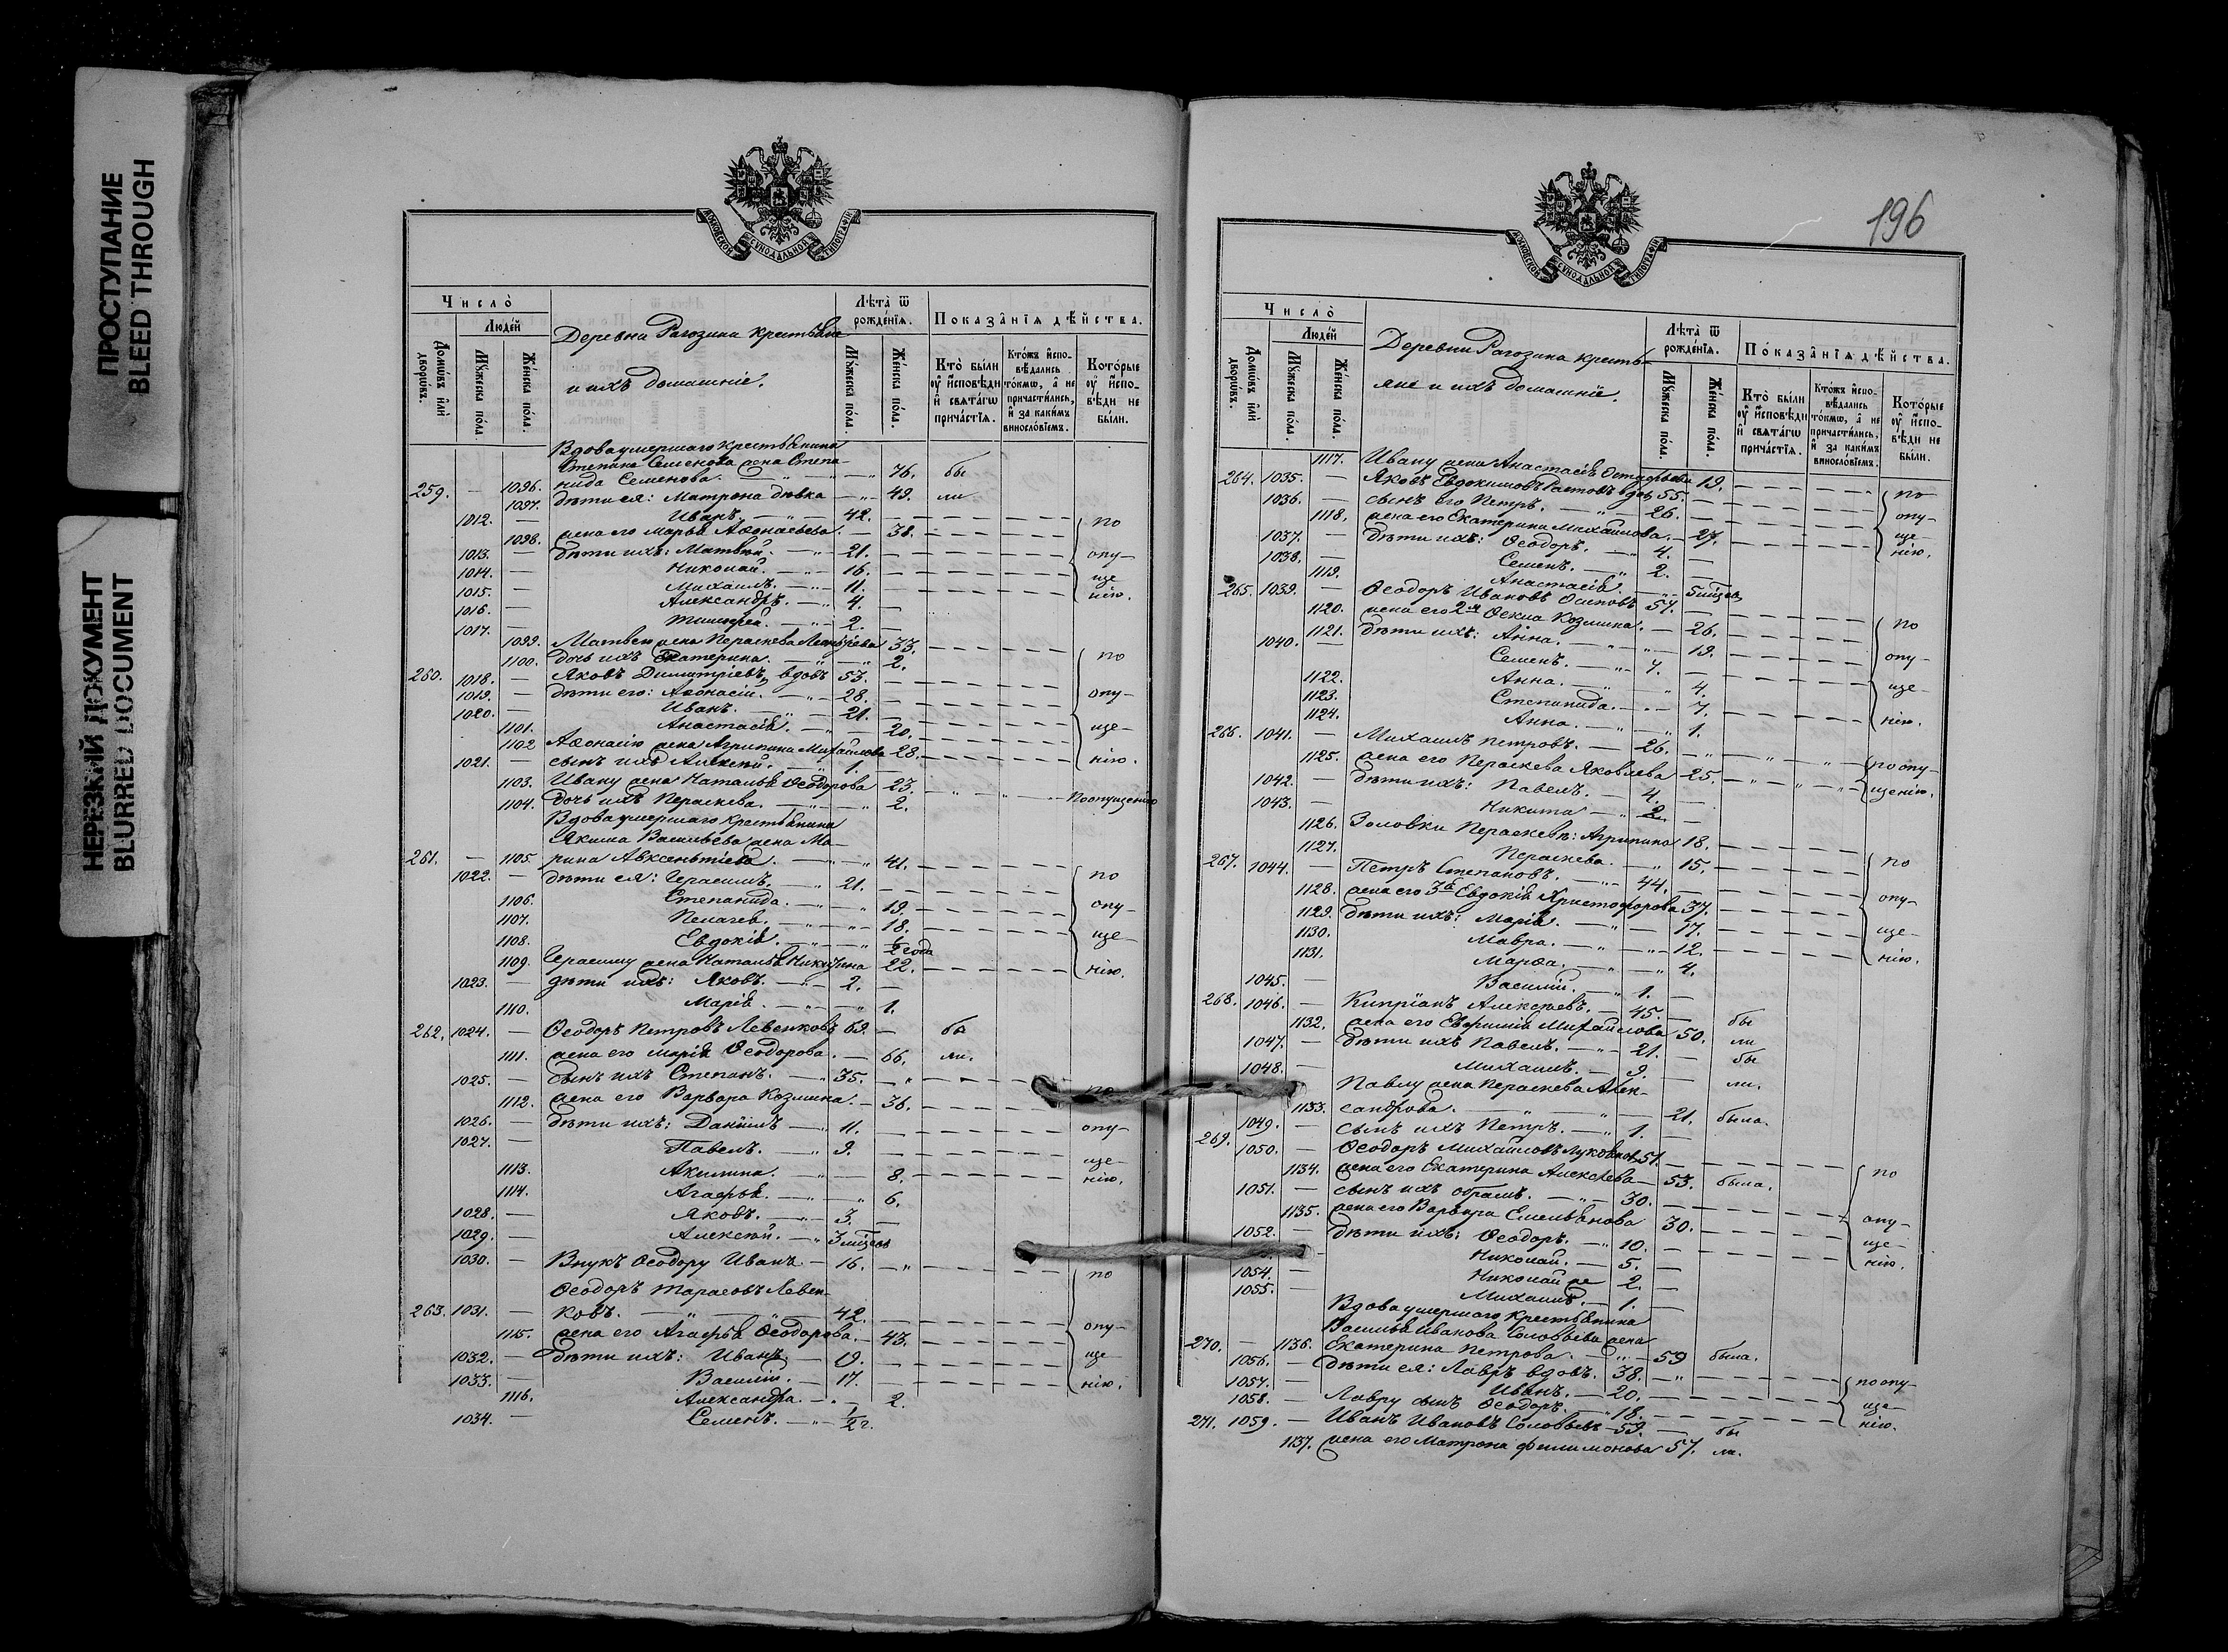 ПРОСТУПАНИЕ
BLEED THROUGH
НЕРЕЗКИЙ ДОКУМЕНТ
BLURRED DOCUMENT
МОСКОВСКОЙ СѴНОДАЛЬНОЙ ТИПОГРАФІИ
Число̀
Людей
Домѡвъ или дворѡвъ.
Мꙋжеска пола.
Женска пола.
Деревни Рагозина крестьяне
и ихъ домашніе.
Лѣта ѿ рожденїѧ.
Мꙋжеска пола.
Женска пола.
Показанїѧ дѣйства.
Кто были ᲂу исповѣди и свѧтагѡ причастїѧ.
Ктожъ исповѣдались токмѡ, а не причастились, и за какимъ винословїемъ.
Которые ᲂу исповѣди не были.
Вдова умершаго крестьянина
Степана Семенова жена Степа-
259. — 1096. нида Семенова. — 76. бы
1097. дѣти ея: Матрона дѣвка — 49. ли
1012. — Иванъ. — 42. —
1098. жена его Марья Аѳонасьева. — 38. по
1013. — дѣти ихъ: Матвѣй. — 21. — опу-
1014. — Николай. — 16. —
1015. — Михаилъ. — 11. — ще
1016. — Александръ. — 4. — нію.
1017. — Тимоѳей. — 2. —
1099. Матвею жена Параскева 33.
1100. дочь ихъ Екатерина. — 2. по
260. 1018. — Яковъ Димитріевъ, вдовъ 53. —
1019. — дѣти его: Аѳонасій. — 28. — опу-
1020. — Иванъ. — 21. —
1101. Анастасія. — 20. ще-
1102 Аѳонасію жена Агрипина Михайлова 28.
1021. — сынъ ихъ Алексѣй. — 1. нію.
1103. Ивану жена Наталья Ѳеодорова 23.
1104. дочь ихъ Параскева. — 2. По опущенію
Вдова умершаго крестьянина
Якима Васильева жена Ма-
261. — 1105. рина Авксентіева. — 41.
1022. — дѣти ея: Герасимъ. — 21. — по
1106. Степанида. — 19. опу-
1107. Пелагея. — 18.
1108. Евдокія. — ½ года ще-
1109. Герасиму жена Наталья Никитина 22. нію.
1023. — дѣти ихъ: Яковъ. — 2. —
1110. Марія. — 1.
262. 1024. — Ѳеодоръ Петровъ Левенковъ 69. — бы
1111. жена его Марія Ѳеодорова. — 66. ли.
1025. — сынъ ихъ Степанъ. — 35. —
1112. жена его Варвара Козмина. — 36. по
1026. — дѣти ихъ: Даніилъ — 11. опу-
1027. — Павелъ. — 9. ще-
1113. Акилина. — 8. нію.
1114. Агафья. — 6.
1028. — Яковъ. — 3. —
1029. — Алексѣй. — 3 мѣсяц
1030. — Внукъ Ѳеодору Иванъ — 16. — по
Ѳеодоръ Тарасовъ Левен-
263. 1031. — ковъ. — 42.
1115. жена его Агафья Ѳеодорова. — 43. опу-
1032. — дѣти ихъ: Иванъ. — 19. ще
1033. — Василій. — 17. нію.
1116. Александра. — 2.
1034. — Семенъ. — ½ г.
196
МОСКОВСКОЙ СѴНОДАЛЬНОЙ ТИПОГРАФІИ
Число̀
Людей
Домѡвъ или дворѡвъ.
Мꙋжеска пола.
Женска пола.
Деревни Рагозина кресть-
яне и ихъ домашніе.
Лѣта ѿ рожденїѧ.
Мꙋжеска пола.
Женска пола.
Показанїѧ дѣйства.
Кто были ᲂу исповѣди и свѧтагѡ причастїѧ.
Ктожъ исповѣдались токмѡ, а не причастились, и за какимъ винословїемъ.
Которые ᲂу исповѣди не были.
1117. Ивану жена Анастасія 19.
264. 1035. — Яковъ Евдокимовъ вдов 55. — по
1036. — сынъ его Петръ. — 26. — опу-
1118. жена его Екатерина Михайлова. — 27. ще
1037. — дѣти ихъ: Ѳеодоръ. — 4. — нію.
1038. — Семенъ. — 2. —
1119. Анастасія. — 5 мѣсяц
265. 1039. — Ѳеодоръ Ивановъ Осиповъ 57. — по
1120. жена его 2я Ѳекла Козмина. — 26.
1121. дѣти ихъ: Анна. — 19. опу-
1040. — Семенъ. — 7. —
1122. Анна. — 4. ще-
1123. Степанида. — 7.
1124. Анна. — 1. нію.
266. 1041. — Михаилъ Петровъ. — 26.
1125. жена его Параскева Яковлева 25. по опу-
1042. — дѣти ихъ: Павелъ. — 4. — щенію.
1043. — Никита — 2. —
1126. Золовки Параскевѣ: Агрипина 18.
1127. Параскева. — 15. по
267. 1044. — Петръ Степановъ. — 44. —
1128. жена его 3я Евдокія Христофорова 37. опу-
1129. дѣти ихъ: Марія. — 17.
1130. Мавра. — 12. ще-
1131. Марѳа. — 4. нію.
1045. — Василій. — 1. —
268. 1046. — Кипріанъ Алексѣевъ. — 45. — бы
1132. жена его Евфимія Михайлова 50. ли
1047. — дѣти ихъ Павелъ. — 21. — бы
1048. — Михаилъ. — 9. — ли.
Павлу жена Параскева Алек-
1133. сандрова. — 21. была.
1049. — сынъ ихъ Петръ. — 1. —
269. 1050. — Ѳеодоръ Михайловъ 51. — по
1134. жена его Екатерина Алексѣева — 53. была.
1051. — сынъ ихъ — 30. — опу-
1135. жена его Варвара Емельянова 30. ще
1052. — дѣти ихъ: Ѳеодоръ. — 10. — нію.
Николай. — 5. —
1054. — Николай же 2. —
1055. — Михаилъ. — 1. —
Вдова умершаго крестьянина
Василья Иванова Соловьева жена
270. — 1136. Екатерина Петрова. — 59 была.
1056. — дѣти ея: Лавръ вдовъ. 38. — по опу-
1057. — Иванъ. — 20. — ще-
1058. — Лавру сынъ Ѳеодоръ. — 18. нію.
271. 1059. — Иванъ Ивановъ Соловьевъ — 59. — бы
1137. жена его Матрона Филимонова 57. ли.